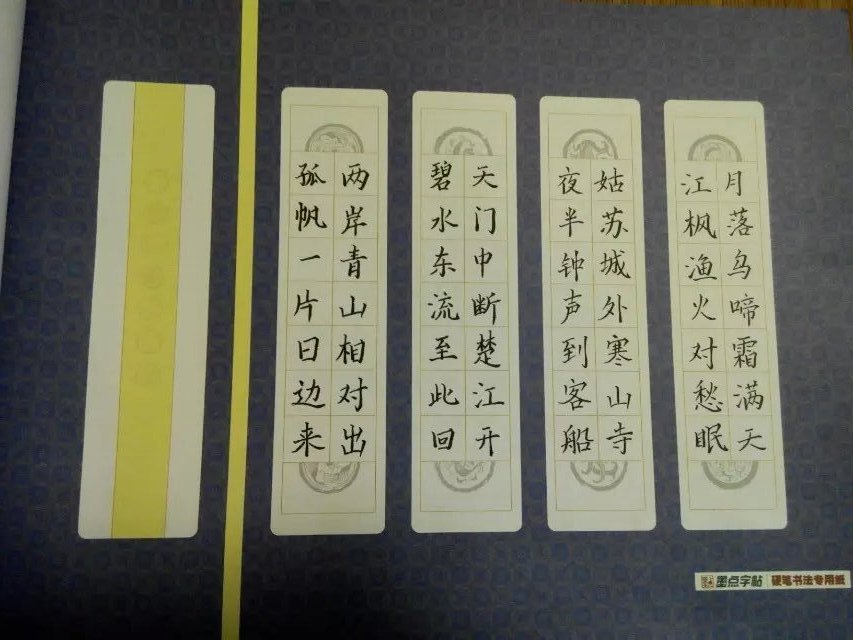 月落乌啼霜满天
江枫渔火对愁眠
姑苏城外寒山寺
夜半钟声到客船
天门中断楚江开
碧水东流至此回
两岸青山相对出
孤帆一片日边来
墨点字帖 硬笔书法专用纸